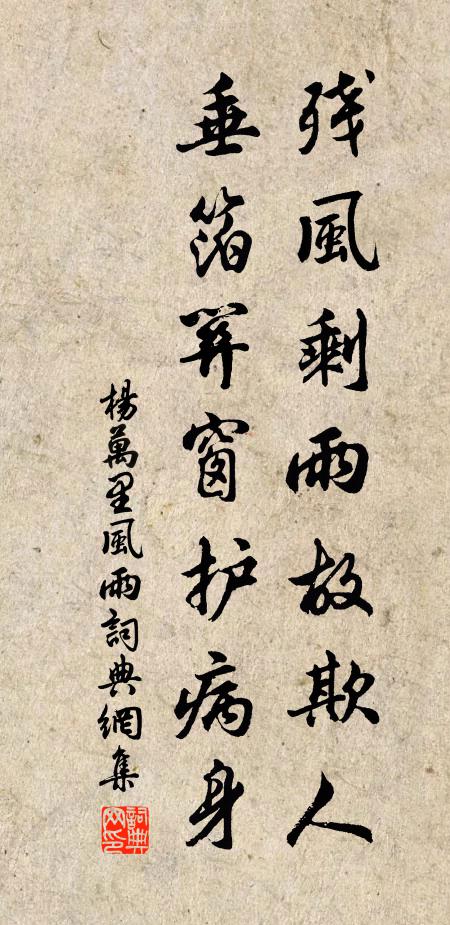 残風剩雨故欺人
垂箔關窗护病身
楊萬里風雨詞典網集
詞典網印